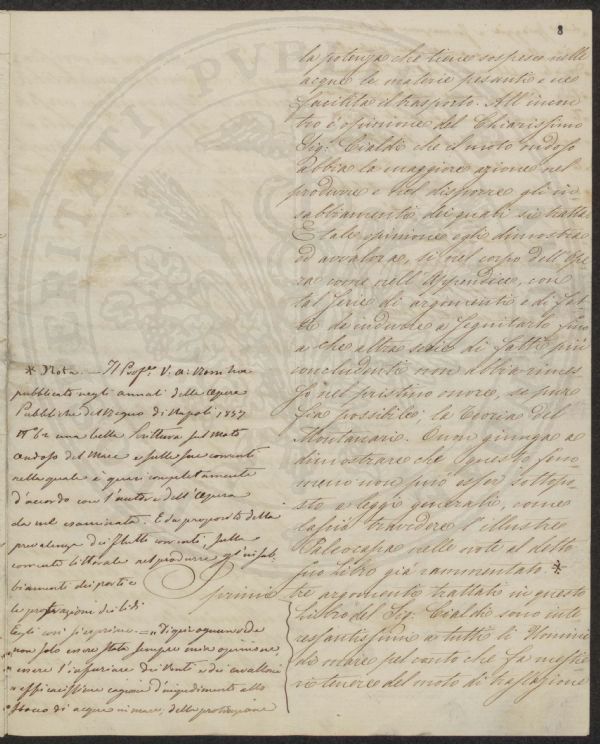 8
la potenza che tiene sospese nelle
acque le materie pesanti e ne
facilita il trasporto. All'incon
tro è opinione del Chiarissimo
Sig.r Cialdi che il moto ondoso
abbia la maggiore azione nel
produrre e nel disporre gli in
sabbiamenti dei quali si tratta
E tale opinione egli dimostra
ed avvalora, sì nel corpo dell'Ope
ra come nell'Appendice, con
tal serie di argomenti e di fat
ti da indurre a seguitarlo fino
a che altra serie di fatti più
concludenti non abbia rimes
so nel pristino onore, se pur
fia possibile la teoria del
Montanari. Ove giunga a
dimostrare che questo feno
meno non può esser sottopo
sto a leggi generali, come
travedere l'illustre
Paleocapa nelle note al detto
suo Libro già rammentato *
tre argomenti trattati in questo
Libro del Sig. Cialdi sono inte
ressantissimi a tutti li Uomini
di mare pel conto che fa mestie
ri tenere del moto di traslazione
* Nota. = Il Prof.re V. A. Rossi ha
pubblicato negli annali delle Opere
Pubbliche del Regno di Napoli 1857
N° 62 una bella Scrittura sul Moto
ondoso del Mare e sulle sue correnti
nella quale è quasi completamente
d'accordo con l'autore dell'Opera
da me esaminata. E da proposito della
prevalenza dei flutti correnti, sulla
corrente littorale nel produrre gl'insab-
biamenti dei porti e
le protrazioni dei lidi
Egli così si esprime = "Di qui ognun vede
" non solo essere stata sempre mia opinione
" essere l'infuriare dei Venti e dei cavalloni
" efficacissima cagione d'impedimento allo
sbocco di acque in mare, della protrazione
Primi